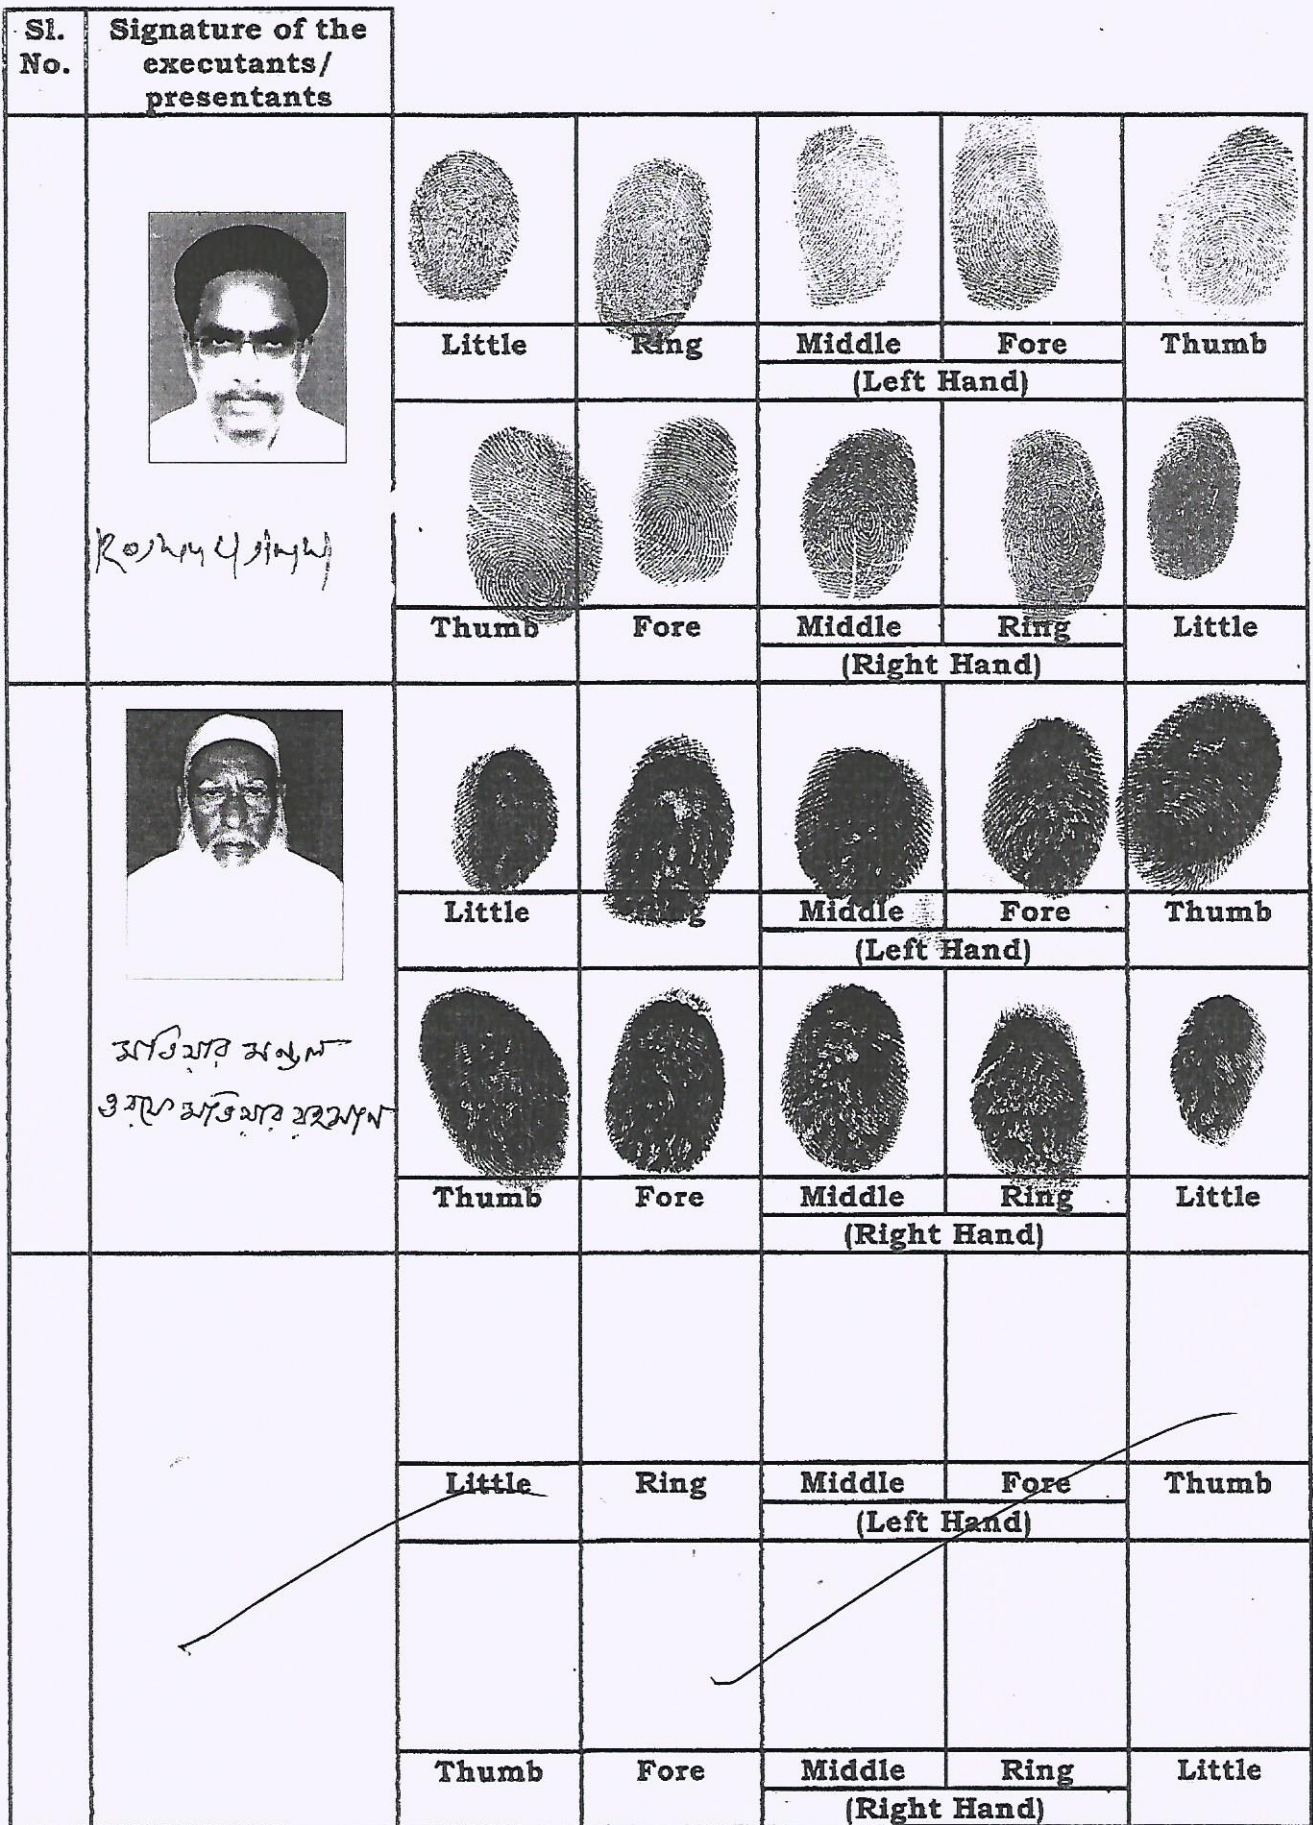 Sl. No.
Signature of the executants/ presentants
Little Ring Middle Fore Thumb
(Left Hand)
Thumb Fore Middle Ring Little
(Right Hand)
Little Ring Middle Fore Thumb
(Left Hand)
মতিয়ার মণ্ডল
ওরফে মতিয়ার রহমান
Thumb Fore Middle Ring Little
(Right Hand)
Little Ring Middle Fore Thumb
(Left Hand)
Thumb Fore Middle Ring Little
(Right Hand)